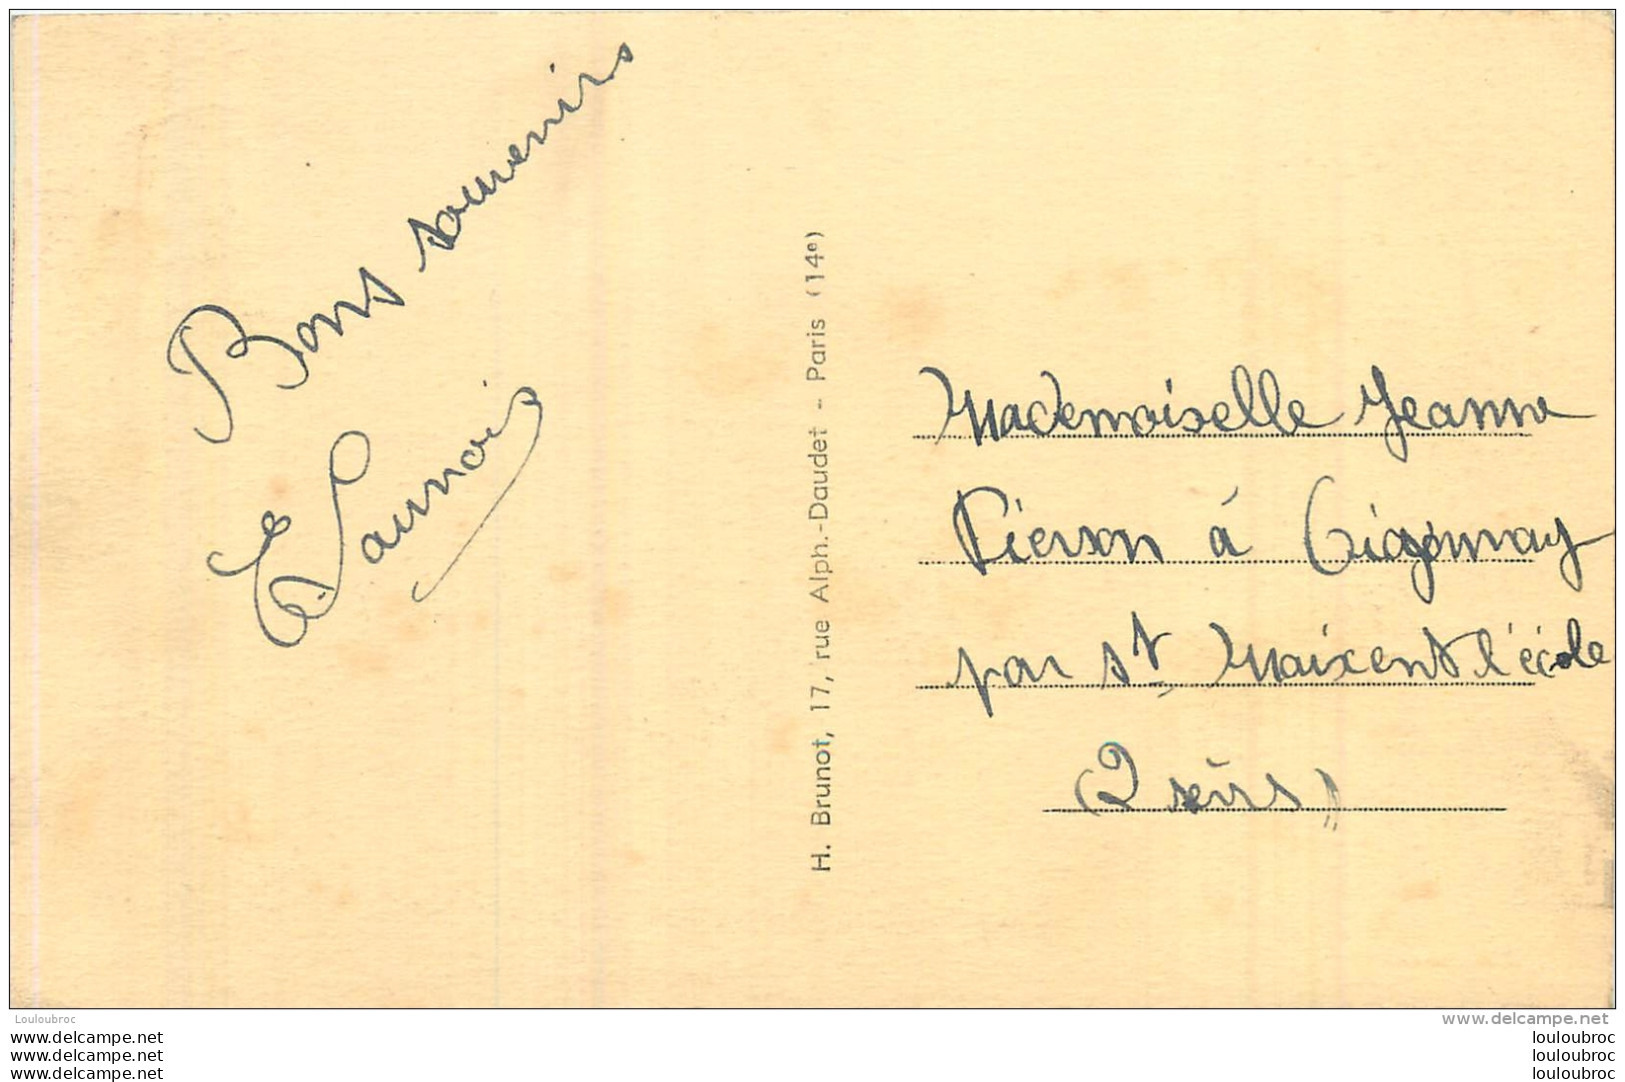 Bons souvenirs
E. Launois
H. Brunot, 17, rue Alph.-Daudet - Paris (14e)
Mademoiselle Jeanne
Pierson à
par St Maixent l'école
(2 sèvrs)
Louloubroc
www.delcampe.net
www.delcampe.net
www.delcampe.net
www.delcampe.net
louloubroc
louloubroc
louloubroc